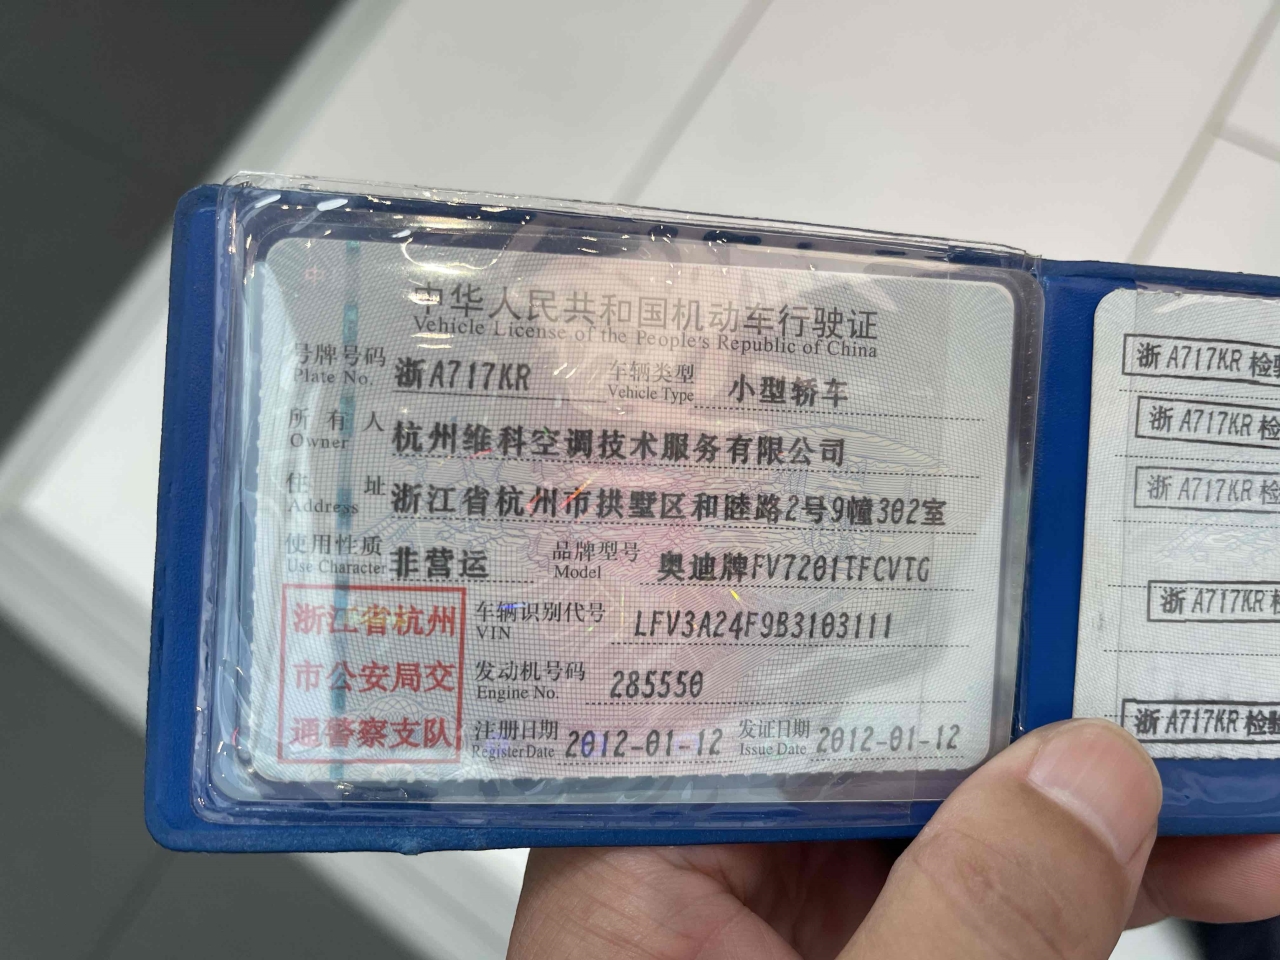 中华人民共和国机动车行驶证
Vehicle License of the People's Republic of China
号牌号码 浙A717KR 车辆类型 小型轿车
Plate No. Vehicle Type
所有人 杭州维科空调技术服务有限公司
Owner
住址 浙江省杭州市拱墅区和睦路2号9幢302室
Address
使用性质 非营运 品牌型号 奥迪牌FV7201TFCVTG
Use Character Model
浙江省杭州
市公安局交
通警察支队
车辆识别代号 LFV3A24F9B3103111
VIN
发动机号码 285550
Engine No.
注册日期 2012-01-12 发证日期 2012-01-12
Register Date Issue Date
浙A717KR 检验
浙A717KR 检
浙A717KR 检
浙A717KR 检
浙A717KR 检验